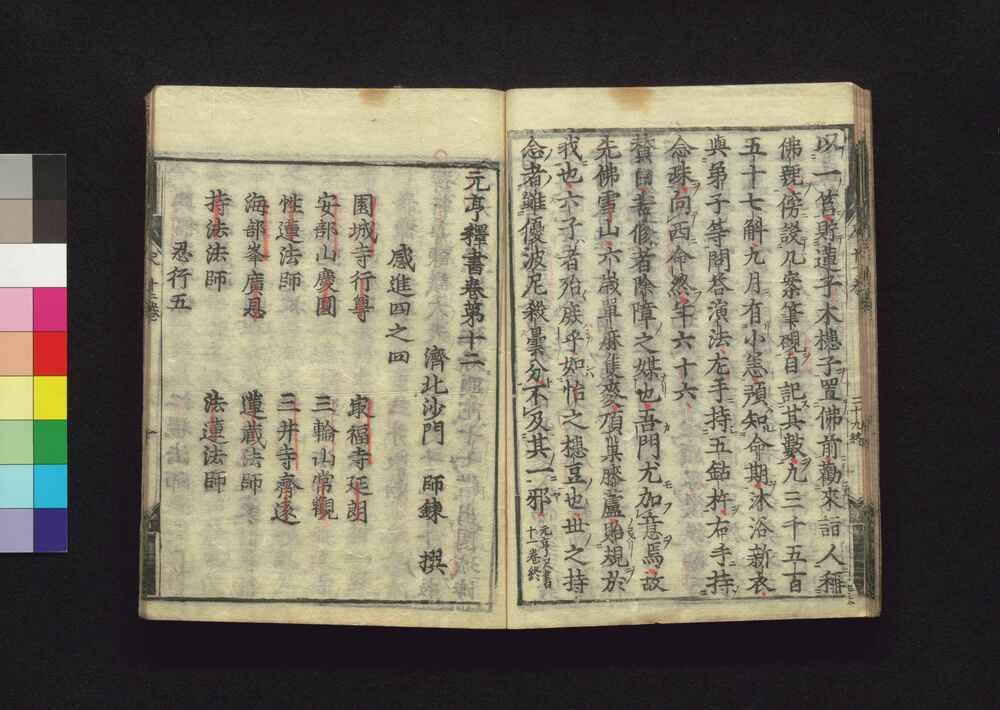 以一筥貯遺子木槵子置佛前勸來詣人稱
佛號傍設几案筆硯自記其數凡三千五百
五十七斛九月有小恙預知命期沐浴新衣
與弟子等問答演法左手持五鈷杵右手持
念珠向西命然年六十六
賛曰善修者除障之媒也吾門尤加意焉故
先佛雪山六歳單麻隻麥頂巢膝蘆貽規於
我也六子者殆族乎如怡之槵豆也世之持
念者雖優波尼殺曇分不及其一邪
元亨釋書
十一卷終
二十九終
元亨釋書卷第十二
濟北沙門 師錬 撰
感進四之四
園城寺行尊 康福寺延朗
安部山慶圓 三輪山常觀
性蓮法師 三井寺齊遠
海部峯廣恩 蓮藏法師
持法法師 法蓮法師
忍行五